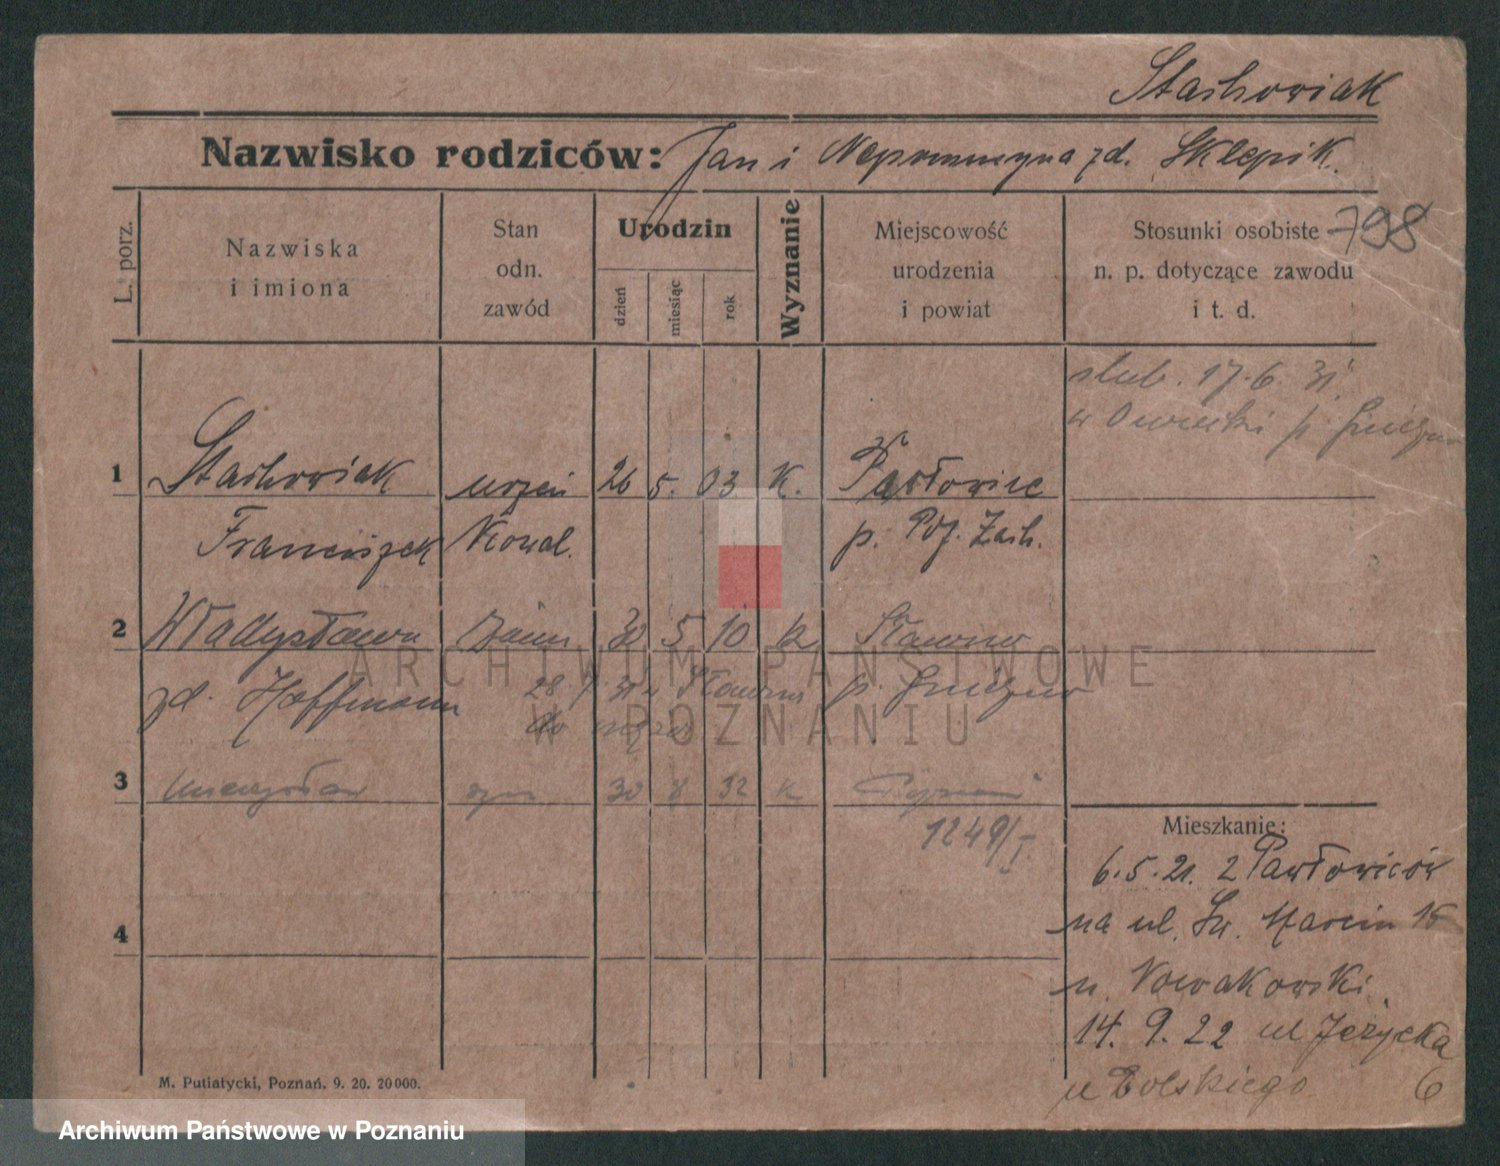 Stachowiak
Nazwisko rodziców: Jan i Nepomucyna zd. Sklepik.
798
L. porz.
Nazwiska
i imiona
Stan
odn.
zawód
Urodzin
dzień
miesiąc
rok
Wyznanie
Miejscowość
urodzenia
i powiat
Stosunki osobiste
n. p. dotyczące zawodu
i t. d.
ślub. 17.6.31.
w p. Gniezno
1 Stachowiak uczeń 26 5. 03 K. Pawłowice
Franciszek Kowal. p. Poz. Zach.
2 Władysława żona 30 5 10 k Sławno
zd. Hoffmann 28. Sławna p. Gniezno
do męża
3 Mieczysław syn 30 8 32 k Poznań
1249/I.
4
Mieszkanie:
6.5.21. z Pawłowiców
na ul. Św. Marcin 15
u. Nowakowski.
14. 9. 22 ul Jeżycka
u Bolskiego 6
M. Putiatycki, Poznań. 9. 20. 20000.
ARCHIWUM PAŃSTWOWE
W POZNANIU
Archiwum Państwowe w Poznaniu